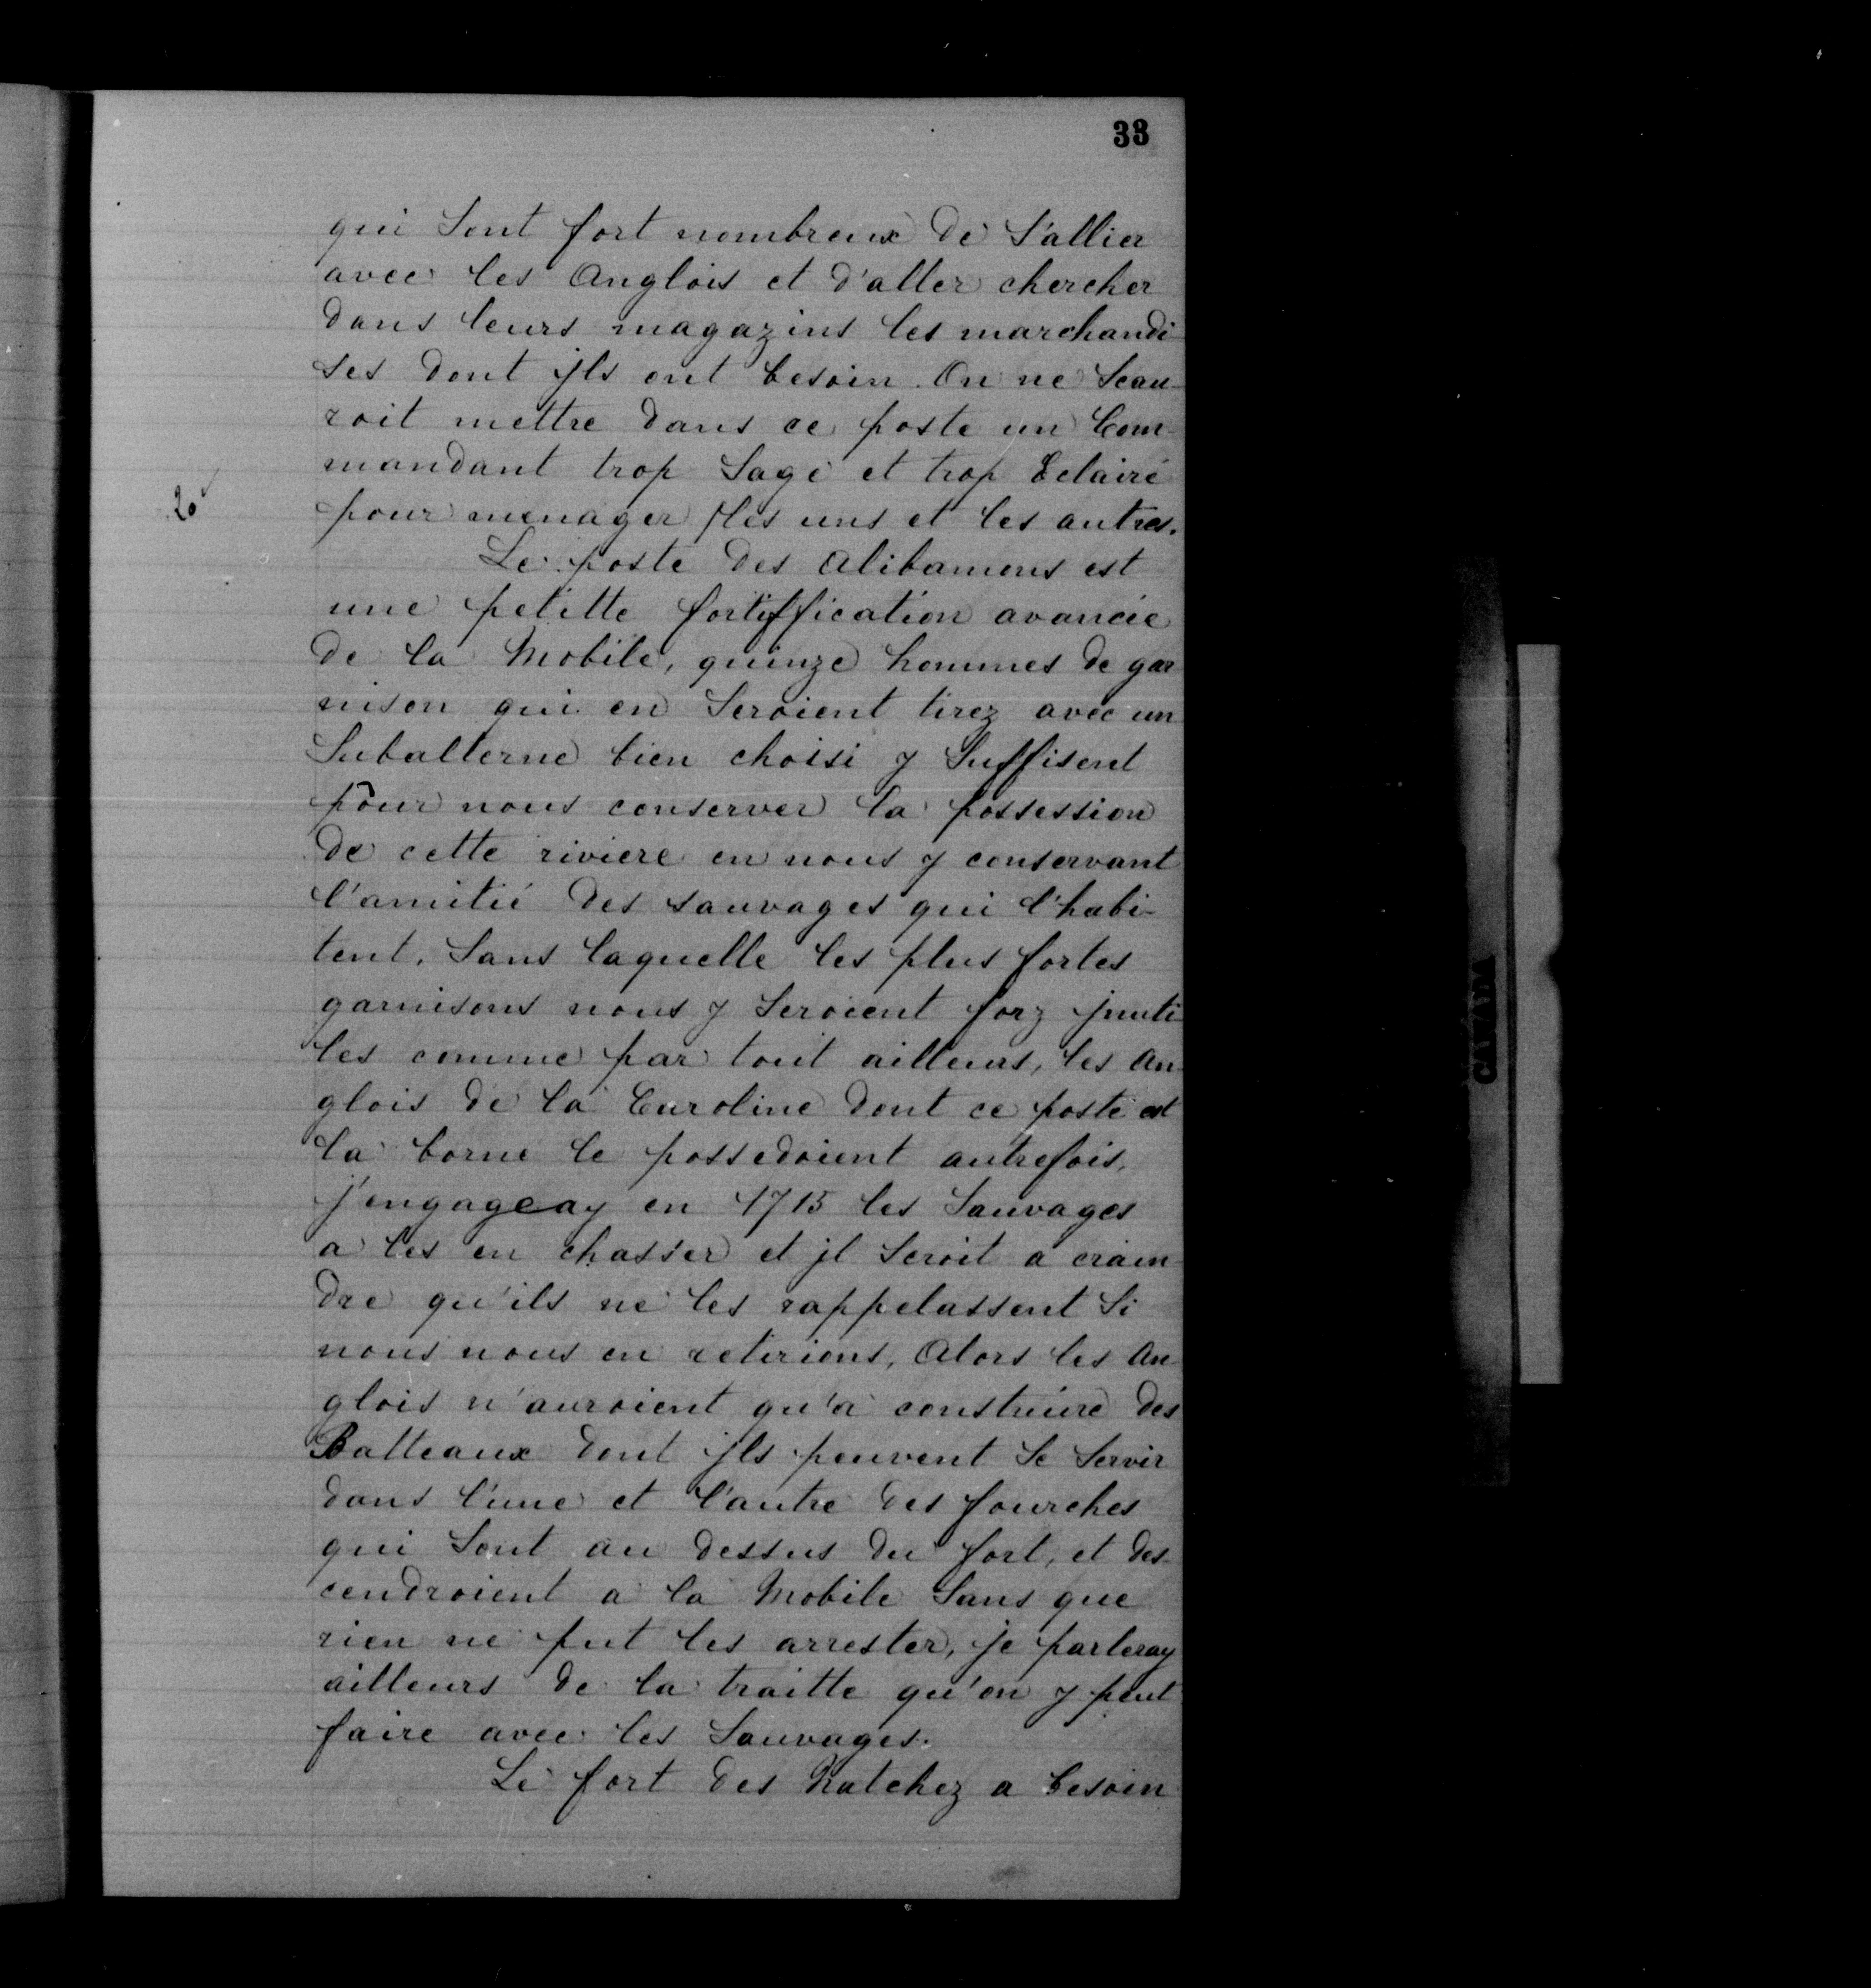 33
qui Sont fort nombreux de S'allier
avec les Anglois et d'aller chercher
dans leurs magazins les marchandi-
ses dont jls ont besoin. On ne Scau-
roit mettre dans ce poste un Com-
mandant trop Sage et trop Eclairé
20
pour menager /les uns et les autres.
Le poste des Alibamons est
une petitte fortiffication avancée
de la Mobile, quinze hommes de gar
nison qui en Seroient tirez avec un
Subalterne bien choisi y Suffisent
pour nous conserver la possession
de cette riviere en nous y conservant
l'amitié des sauvages qui l'habi-
tent, Sans laquelle les plus fortes
garnisons nous y Seroient forz jnuti
les comme par tout ailleurs, les An-
glois de la Caroline dont ce poste est
la borne le possedoient autrefois,
j'engageay en 1715 les Sauvages
a les en chasser et jl Seroit a crain-
dre qu'ils ne les rappelassent Si
nous nous en retirions, Alors les An-
glois n'auroient qu'à construire des
Batteaux dont jls peuvent Se Servir
dans l'une et l'autre des fourches
qui Sont au dessus du fort, et des-
cendroient a la Mobile Sans que
rien ne put les arrester, je parleray
ailleurs de la traitte qu'on y peut
faire avec les Sauvages.
Le fort des Natchez a besoin